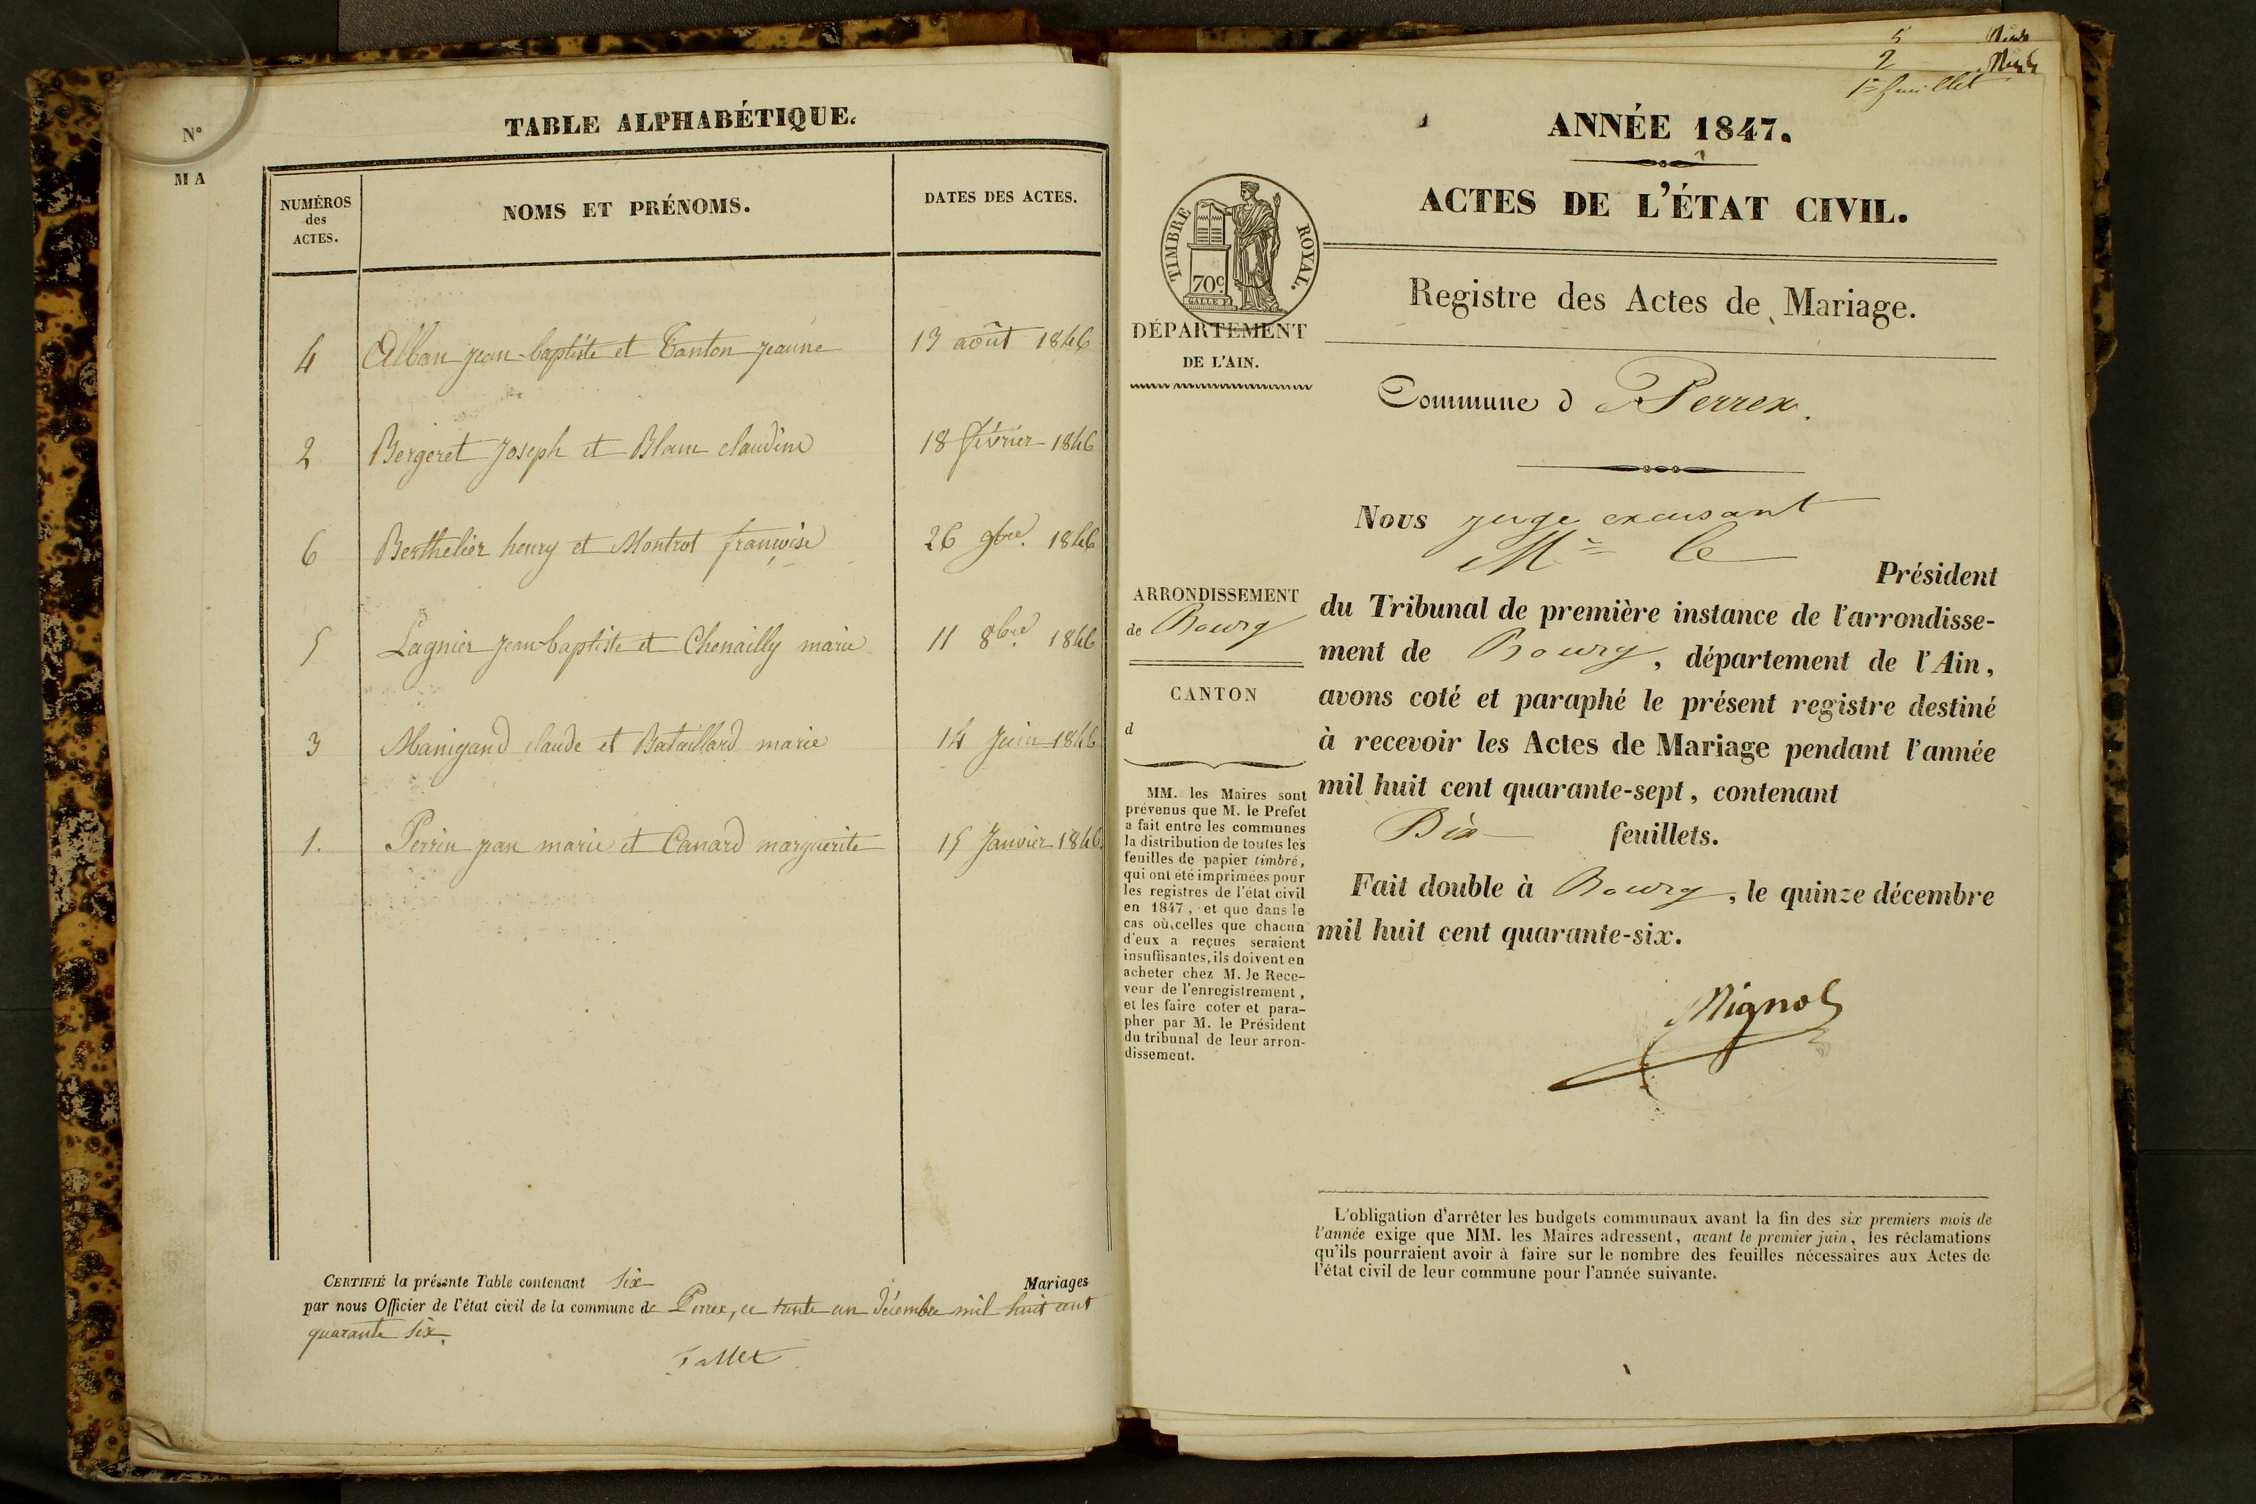 N°
MA
TABLE ALPHABÉTIQUE.
NUMÉROS des ACTES. NOMS ET PRÉNOMS. DATES DES ACTES.
4 Alban jean-baptiste et Tanton jeanne 13 août 1846
2 Bergeret Joseph et Blanc claudine 18 février 1846
6 Berthelier henry et Montrot françoise 26 9bre. 1846
5 Lagnier jean-baptiste et Chenailly marie 11 8bre. 1846
3 Manigand claude et Bataillard marie 14 Juin 1846
1. Perrin jean marie et Canard marguerite 15 Janvier 1846.
CERTIFIÉ la présente Table contenant six Mariages
par nous Officier de l'état civil de la commune de Perrex, ce trente un décembre mil huit cent
quarante six.
5
2
1er feuillet
ANNÉE 1847.
ACTES DE L'ÉTAT CIVIL.
TIMBRE ROYAL.
70c
GALLE F.
DÉPARTEMENT
DE L'AIN.
Registre des Actes de Mariage.
Commune d Perrex.
Nous juge excusant
Mr le
Président
du Tribunal de première instance de l'arrondisse-
ment de Bourg, département de l'Ain,
avons coté et paraphé le présent registre destiné
à recevoir les Actes de Mariage pendant l'année
mil huit cent quarante-sept, contenant
Dix feuillets.
Fait double à Bourg, le quinze décembre
mil huit cent quarante-six.
Mignot
ARRONDISSEMENT
de Bourg
CANTON
d
MM. les Maires sont
prévenus que M. le Préfet
a fait entre les communes
la distribution de toutes les
feuilles de papier timbré,
qui ont été imprimées pour
les registres de l'état civil
en 1847, et que dans le
cas où celles que chacun
d'eux a reçues seraient
insuffisantes, ils doivent en
acheter chez M. le Rece-
veur de l'enregistrement,
et les faire coter et para-
pher par M. le Président
du tribunal de leur arron-
dissement.
L'obligation d'arrêter les budgets communaux avant la fin des six premiers mois de
l'année exige que MM. les Maires adressent, avant le premier juin, les réclamations
qu'ils pourraient avoir à faire sur le nombre des feuilles nécessaires aux Actes de
l'état civil de leur commune pour l'année suivante.